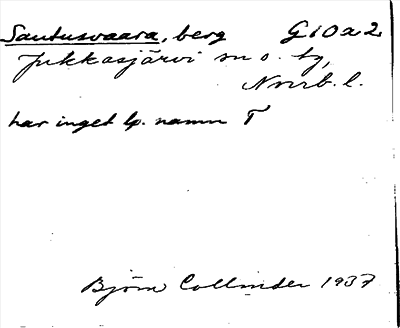 Sautusvaara, berg G10a2
Jukkasjärvi sn o. tg,
Nrrb. l.
har inget lp. namn T
Björn Collinder 1937